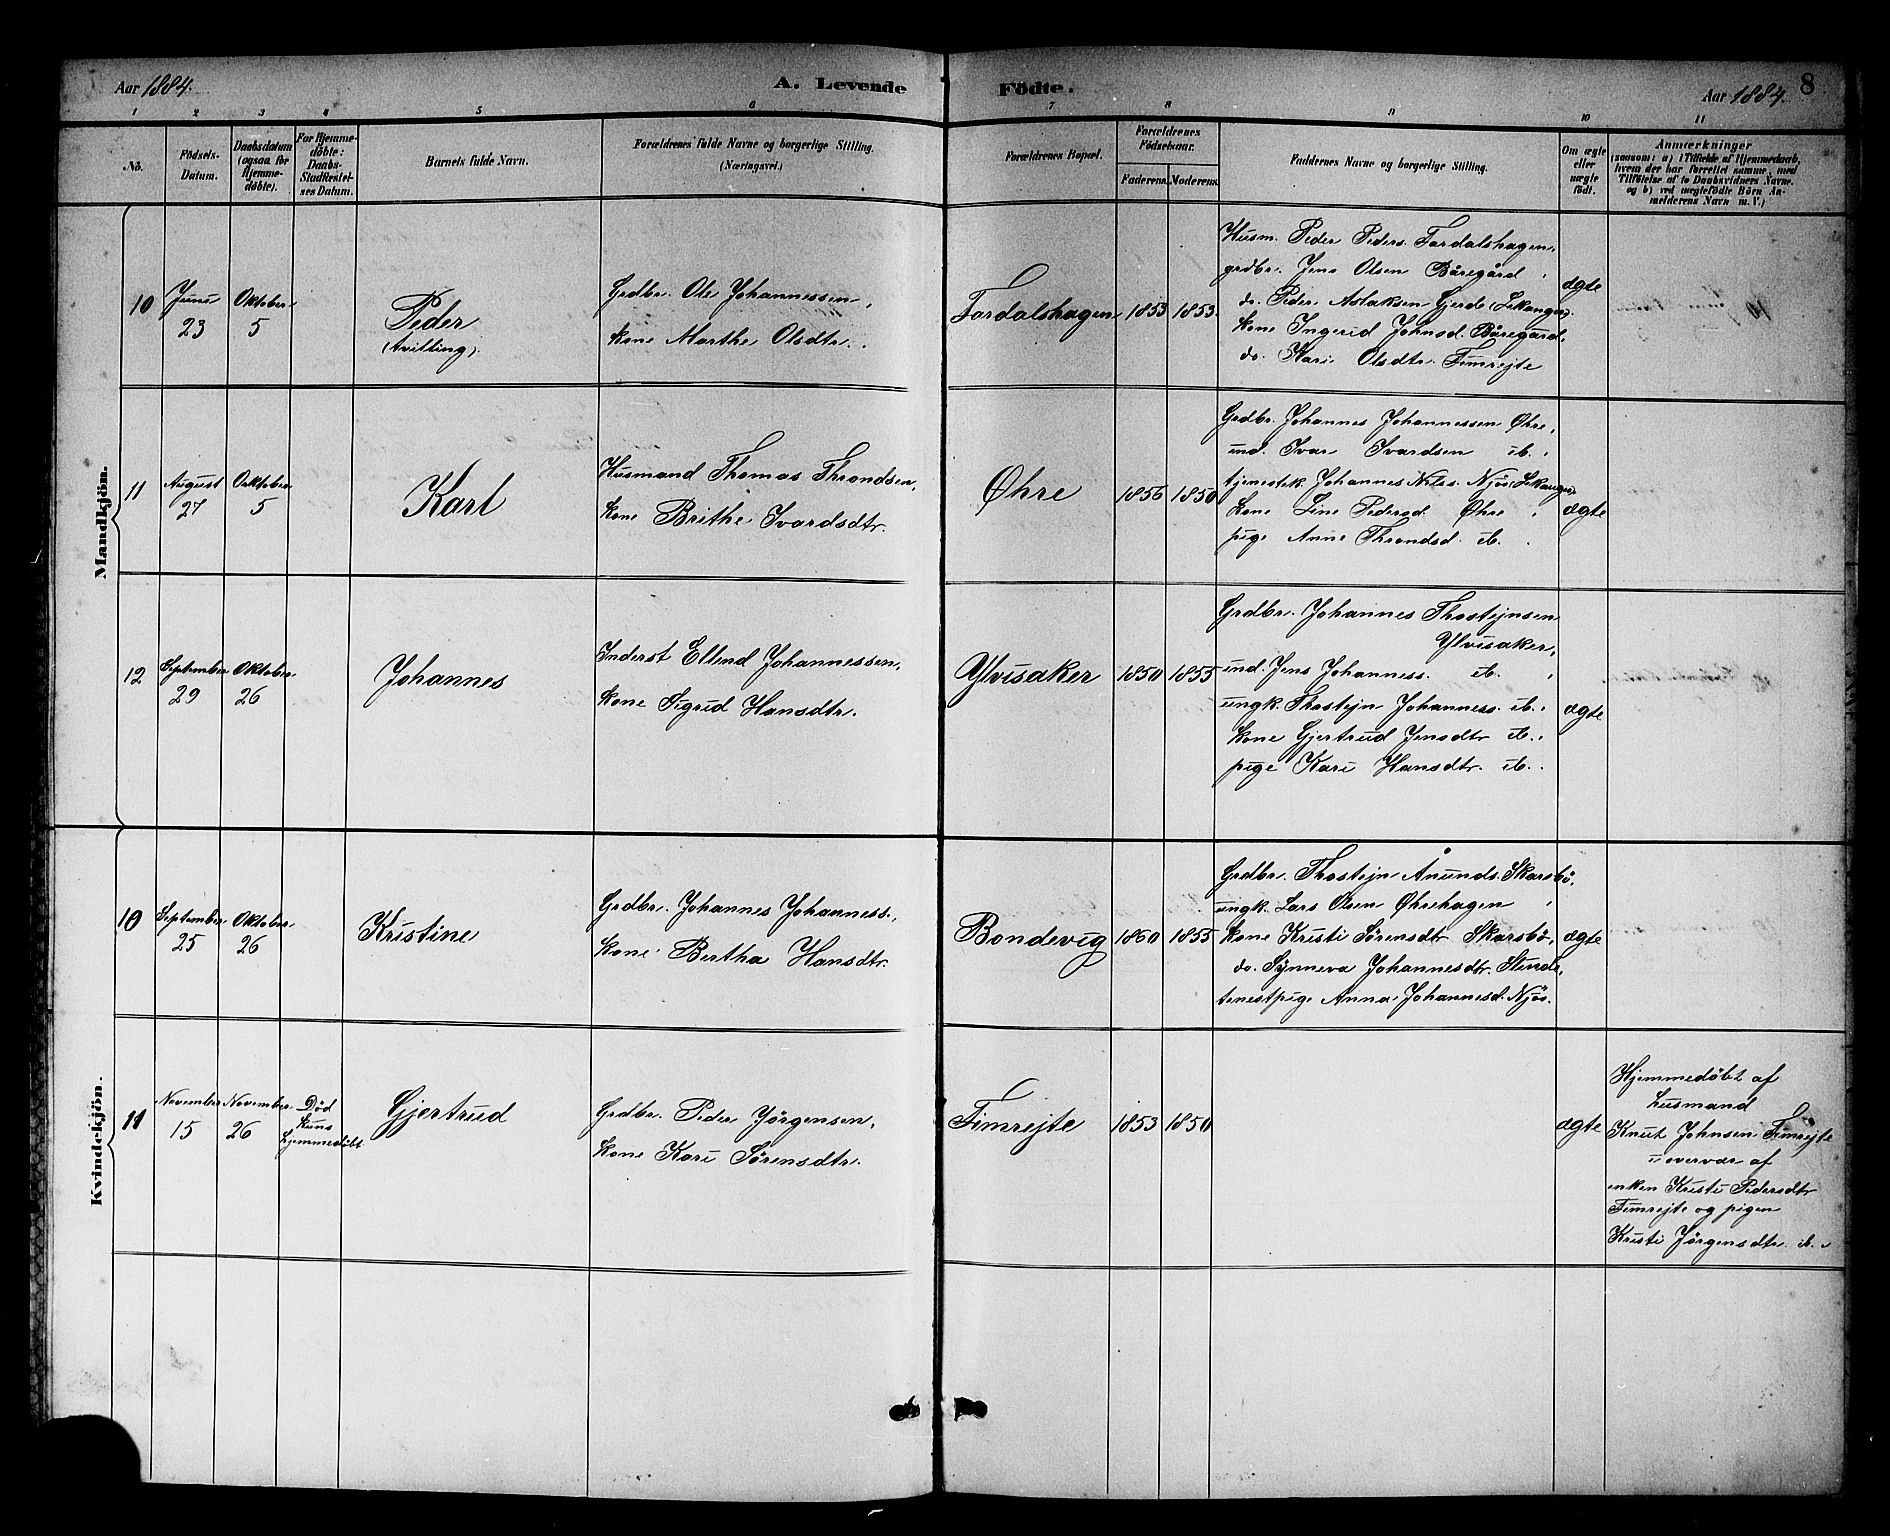 Aar 1884.
A. Levende Födte.
Aar 1884.
8
1 2 3 4 5 6 7 8 9 10 11
No.
Födsels-
Datum.
Daabsdatum
(ogsaa for
Hjemme-
døbte).
For Hjemme-
døbte:
Daabs-
Stadfæstel-
ses Datum.
Barnets fulde Navn.
Forældrenes fulde Navne og borgerlige Stilling.
(Næringsvei.)
Forældrenes Bopæl.
Forældrenes
Födselsaar.
Faderens. Moderens.
Faddernes Navne og borgerlige Stilling.
Om ægte
eller
uægte
født.
Anmærkninger
(saasom: a) i Tilfælde af Hjemmedaab,
hvem der har forrettet samme, med
Tilføielse af to Daabsvidners Navne.
og b) ved uægtefødte Börn An-
melderens Navn m. V.)
Mandkjön.
10
Juni
23
Oktober
5
Peder
(tvilling).
Grdbr. Ole Johannessen,
kone Marthe Olsdtr.
Fardalshagen
1853
1853.
Husm. Peder Peders. Fardalshagen,
grdbr. Jens Olsen Båregård,
do. Peder Aslaksen Gjerde (Lekanger).
kone Ingerid Johnsd. Båregård,
do. Kari Olsdtr. Fimrejte
ægte
11
August
27
Oktober
5
Karl
Husmand Thomas Throndsen,
kone Brithe Ivarsdtr.
Øhre
1856
1850
Grdbr. Johannes Johannessen Øhre,
ind. Ivar Ivardsen ib.,
tjenestek Johannes Nilss. Njøs (Lekanger),
kone Line Pedersd. Øhre,
pige Anne Throndsd. ib.
ægte
12
September
29
Oktober
26
Johannes
Inderst Ellend Johannessen,
kone Sigrid Hansdtr.
Ylvisaker
1850
1855
Grdbr. Johannes Thostejnsen
Ylvisaker,
ind. Jens Johanness. ib.,
ungk. Thostejn Johanness. ib.,
kone Gjertrud Jensdtr ib.,
pige Kari Hansdtr. ib.
ægte
Kvindekjön.
10
September
25
Oktober
26
Kristine
Grdbr. Johannes Johanness.,
kone Bertha Hansdtr.
Bondevig
1860
1855
Grdbr. Thostejn Ånunds. Skarsbø,
ungk. Lars Olsen Øhrehagen,
kone Kristi Sørensdtr Skarsbø,
do. Synneva Johannesdtr. Stende,
tenestpige Anna Johannesd. Njøs.
ægte
11
November
15
November
26
Død
kuns
hjemmedøbt
Gjertrud
Grdbr. Peder Jørgensen,
kone Kari Sørensdtr.
Fimrejte
1853
1850
ægte
Hjemmedøbt af
husmand
Knut Johnsen Fimrejte
i overvær af
enken Kristi Pedersdtr
Fimrejte og pigen
Kristi Jørgensdtr. ib.